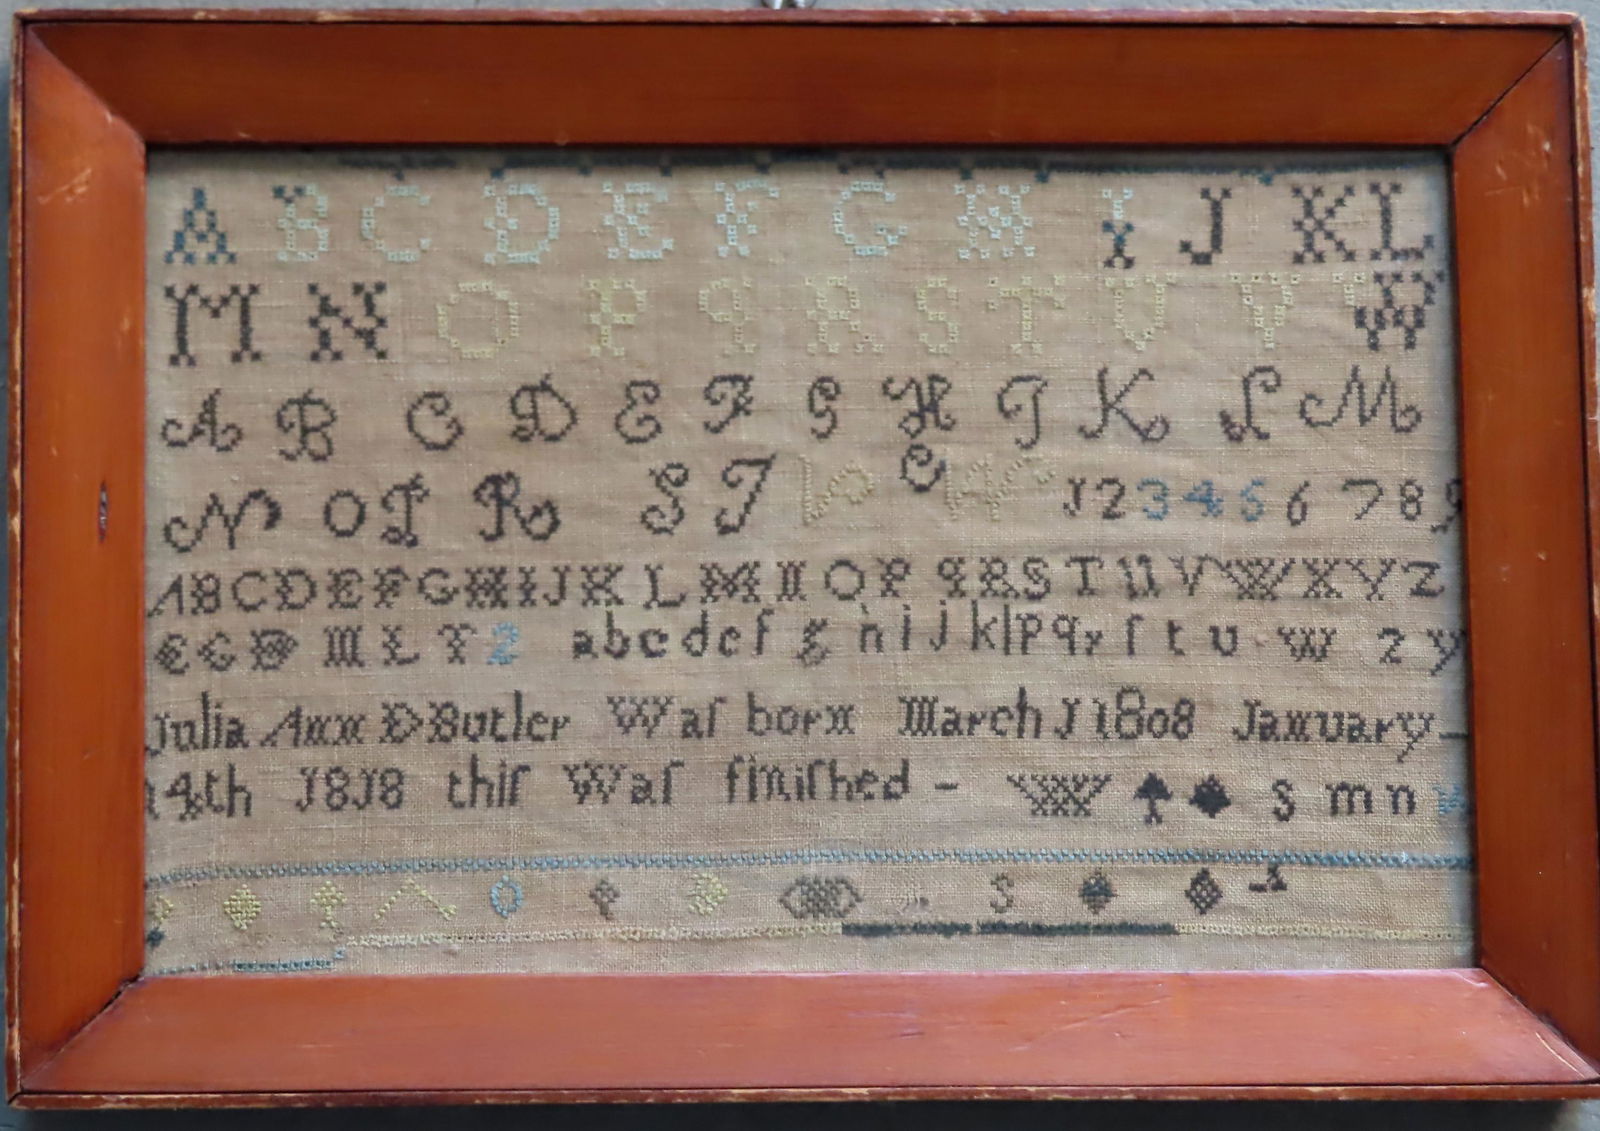 A B C D E F G H I J K L
M N O P Q R S T U V W
A B C D E F G H J K L M
N O P R S T J 2 3 4 5 6 7 8 9
A B C D E F G H I J K L M N O P Q R S T U V W X Y Z
a b c d e f g h i j k l p q r ſ t u w z y
Julia Ann D Butler Waſ born March J 1808 January
14th J8J8 thiſ Waſ finiſhed - W s m n
S